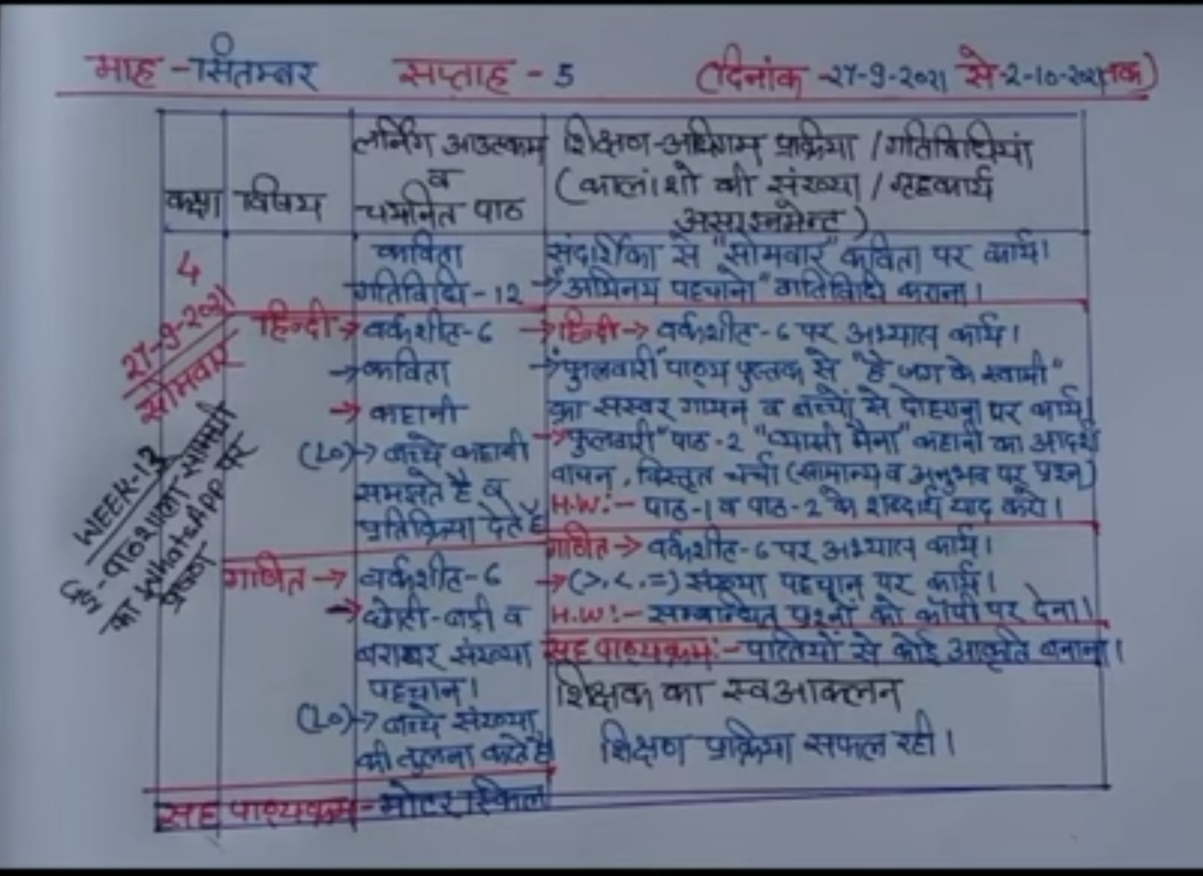 माह - सितम्बर सप्ताह - 5 (दिनांक -27-9-2021 से -2-10-2021 तक)
कक्षा
विषय
लर्निंग आउटकम
व
चयनित पाठ
शिक्षण-अधिगम प्रक्रिया / गतिविधियां
(कालांशो की संख्या / गृहकार्य
असाइनमेन्ट)
4
27-9-2021
सोमवार
WEEK-13
पाठशाला सामग्री
का WhatsApp पर
प्रेषण
कविता
गतिविधि-12
संदर्शिका से "सोमवार" कविता पर कार्य।
→ "अभिनय पहचानो" गतिविधि कराना।
हिन्दी → वर्कशीट-6
→ कविता
→ कहानी
(LO) → बच्चे कहानी
समझते है व
प्रतिक्रिया देते है
→ हिन्दी → वर्कशीट-6 पर अभ्यास कार्य।
→ "फुलवारी" पाठ्य पुस्तक से "हे जग के स्वामी"
का सस्वर गायन व बच्चों से दोहराना पर कार्य।
→ "फुलवारी" पाठ-2 "प्यासी मैना" कहानी का आदर्श
वाचन, विस्तृत चर्चा (सामान्य व अनुभव पर प्रश्न)
H.W:- पाठ-1 व पाठ-2 के शब्दार्थ याद करो।
गणित → वर्कशीट-6
→ छोटी-बड़ी व
बराबर संख्या
पहचान।
(LO) → बच्चे संख्या
की तुलना करते है
गणित → वर्कशीट-6 पर अभ्यास कार्य।
→ (>, <, =) संख्या पहचान पर कार्य।
H.W:- सम्बन्धित प्रश्नों को कॉपी पर देना।
सह पाठ्यक्रम:- पत्तियों से कोई आकृति बनाना।
शिक्षक का स्वआकलन
शिक्षण प्रक्रिया सफल रही।
सह पाठ्यक्रम - मोटर स्किल